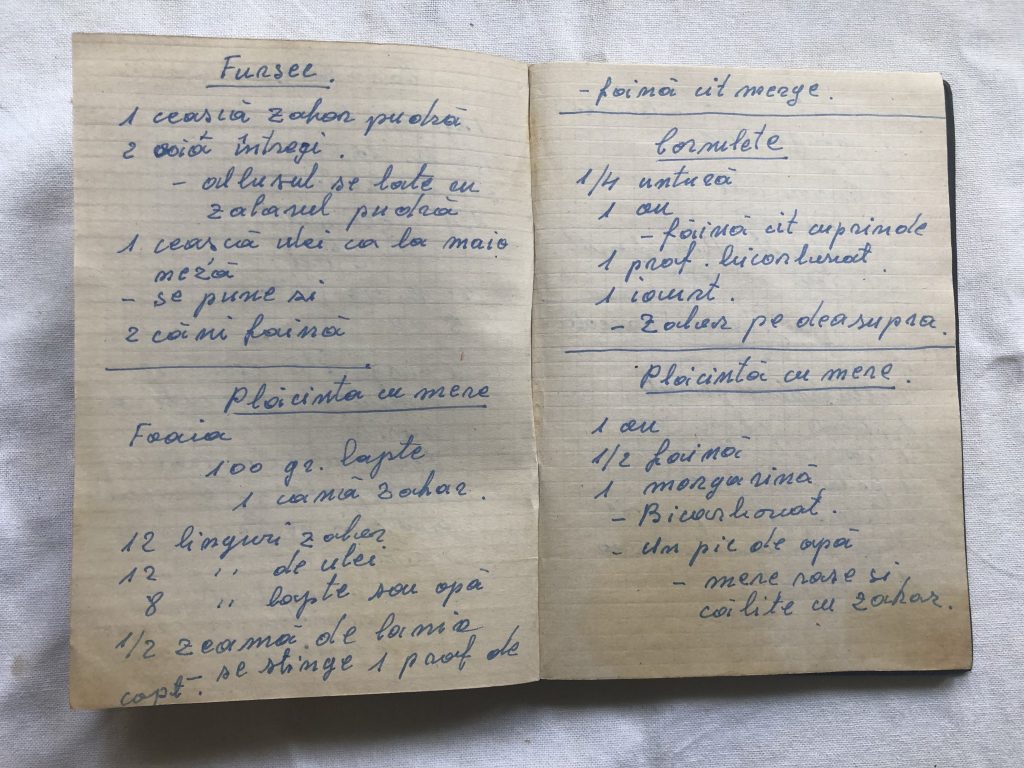 Fursec.
1 cească zahar pudră
2 ouă întregi.
- albusul se bate cu
zaharul pudră
1 cească ulei ca la maio
neză
- se pune si
2 căni faină
Plăcinta cu mere
Foaia
100 gr. lapte
1 cană zahar.
12 linguri zahar
12 " de ulei
8 " lapte sau apă
1/2 zeamă de lamîe
- se stinge 1 praf de
copt.
- faină cit merge.
Cornulete
1/4 untură
1 ou
- faină cit cuprinde
1 praf. bicarbonat.
1 iaurt.
- Zahar pe deasupra.
Plăcintă cu mere.
1 ou
1/2 faină
1 margarină
- Bicarbonat.
- Un pic de apă
- mere rase si
călite cu zahar.